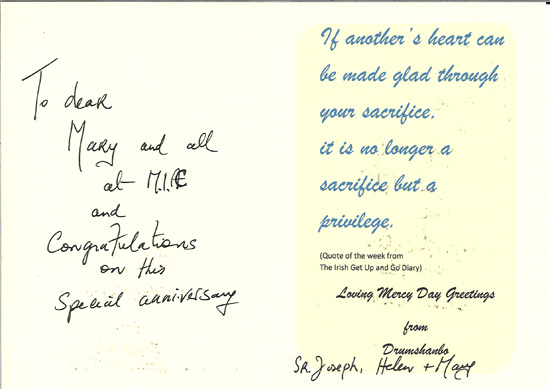 To dear
Mary and all
at
and
Congratulations
on this
Special anniversary
If another's heart can
be made glad through
your sacrifice,
it is no longer a
sacrifice but a
privilege.
(Quote of the week from
The Irish Get Up and Go Diary)
Loving Mercy Day Greetings
from
Drumshanbo
Sr. Joseph, Helen + Mary